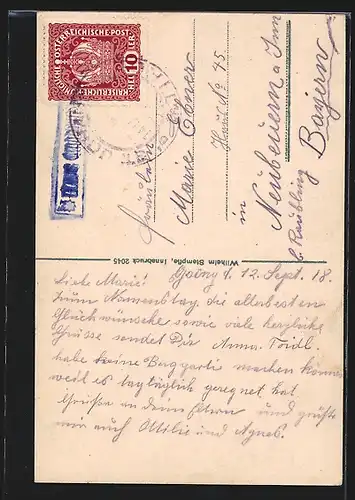 KAISERLICHE KÖNIGLICHE ÖSTERREICHISCHE POST
10 HELLER
Fräulein
Marie
Haus No 45
in
Neubeuern a Inn
b. Raubling
Bayern
Wilhelm Stempfle, Innsbruck 2045
Going d. 12. Sept. 18.
Liebe Marie!
Zum Namenstag die allerbesten
Glückwünsche sowie viele herzliche
Grüsse sendet Dir Anna
habe keine Bergpartie machen können
weil es tagtäglich geregnet hat
Grüße an deine Eltern und grüße
mir auch Ottilie und Agnes.